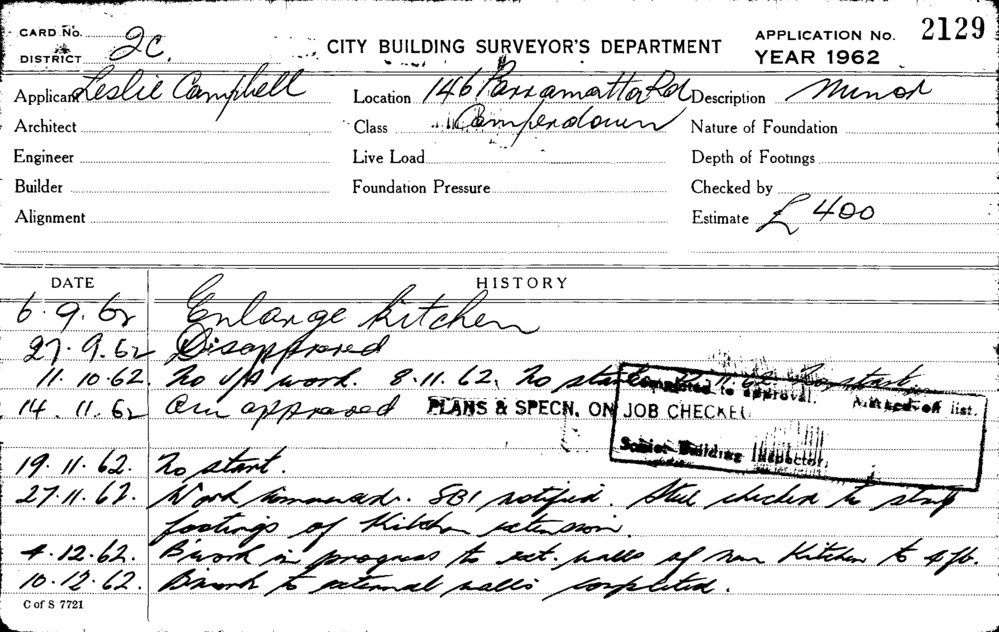 CARD No.
DISTRICT 2C.
CITY BUILDING SURVEYOR'S DEPARTMENT
APPLICATION No. 2129
YEAR 1962
Applicant Leslie Campbell
Location 146 Parramatta Rd
Description Minor
Architect
Class Camperdown
Nature of Foundation
Engineer
Live Load
Depth of Footings
Builder
Foundation Pressure
Checked by
Alignment
Estimate £ 400
DATE HISTORY
6.9.62 Enlarge kitchen
27.9.62 Disapproved
11.10.62. No work. 8.11.62. No start 62 No start
Completed to approval. Marked-off list.
14.11.62 approved PLANS & SPECN. ON JOB CHECKED
Senior Building Inspector.
19.11.62. No start.
27.11.62. Work commenced. SBI notified. Steel checked to strip
footings of Kitchen extension.
4.12.62. B'work in progress to ext. walls of new Kitchen to 4ft.
10.12.62. B'work to external walls completed.
C of S 7721